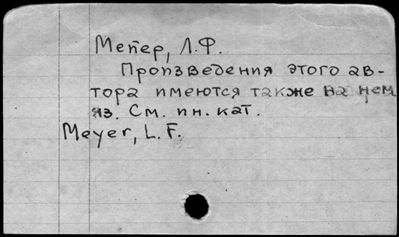 Мейер, Л.Ф.
Произведения этого ав-
тора имеются также на нем
яз. См. ин. кат.
Meyer, L.F.